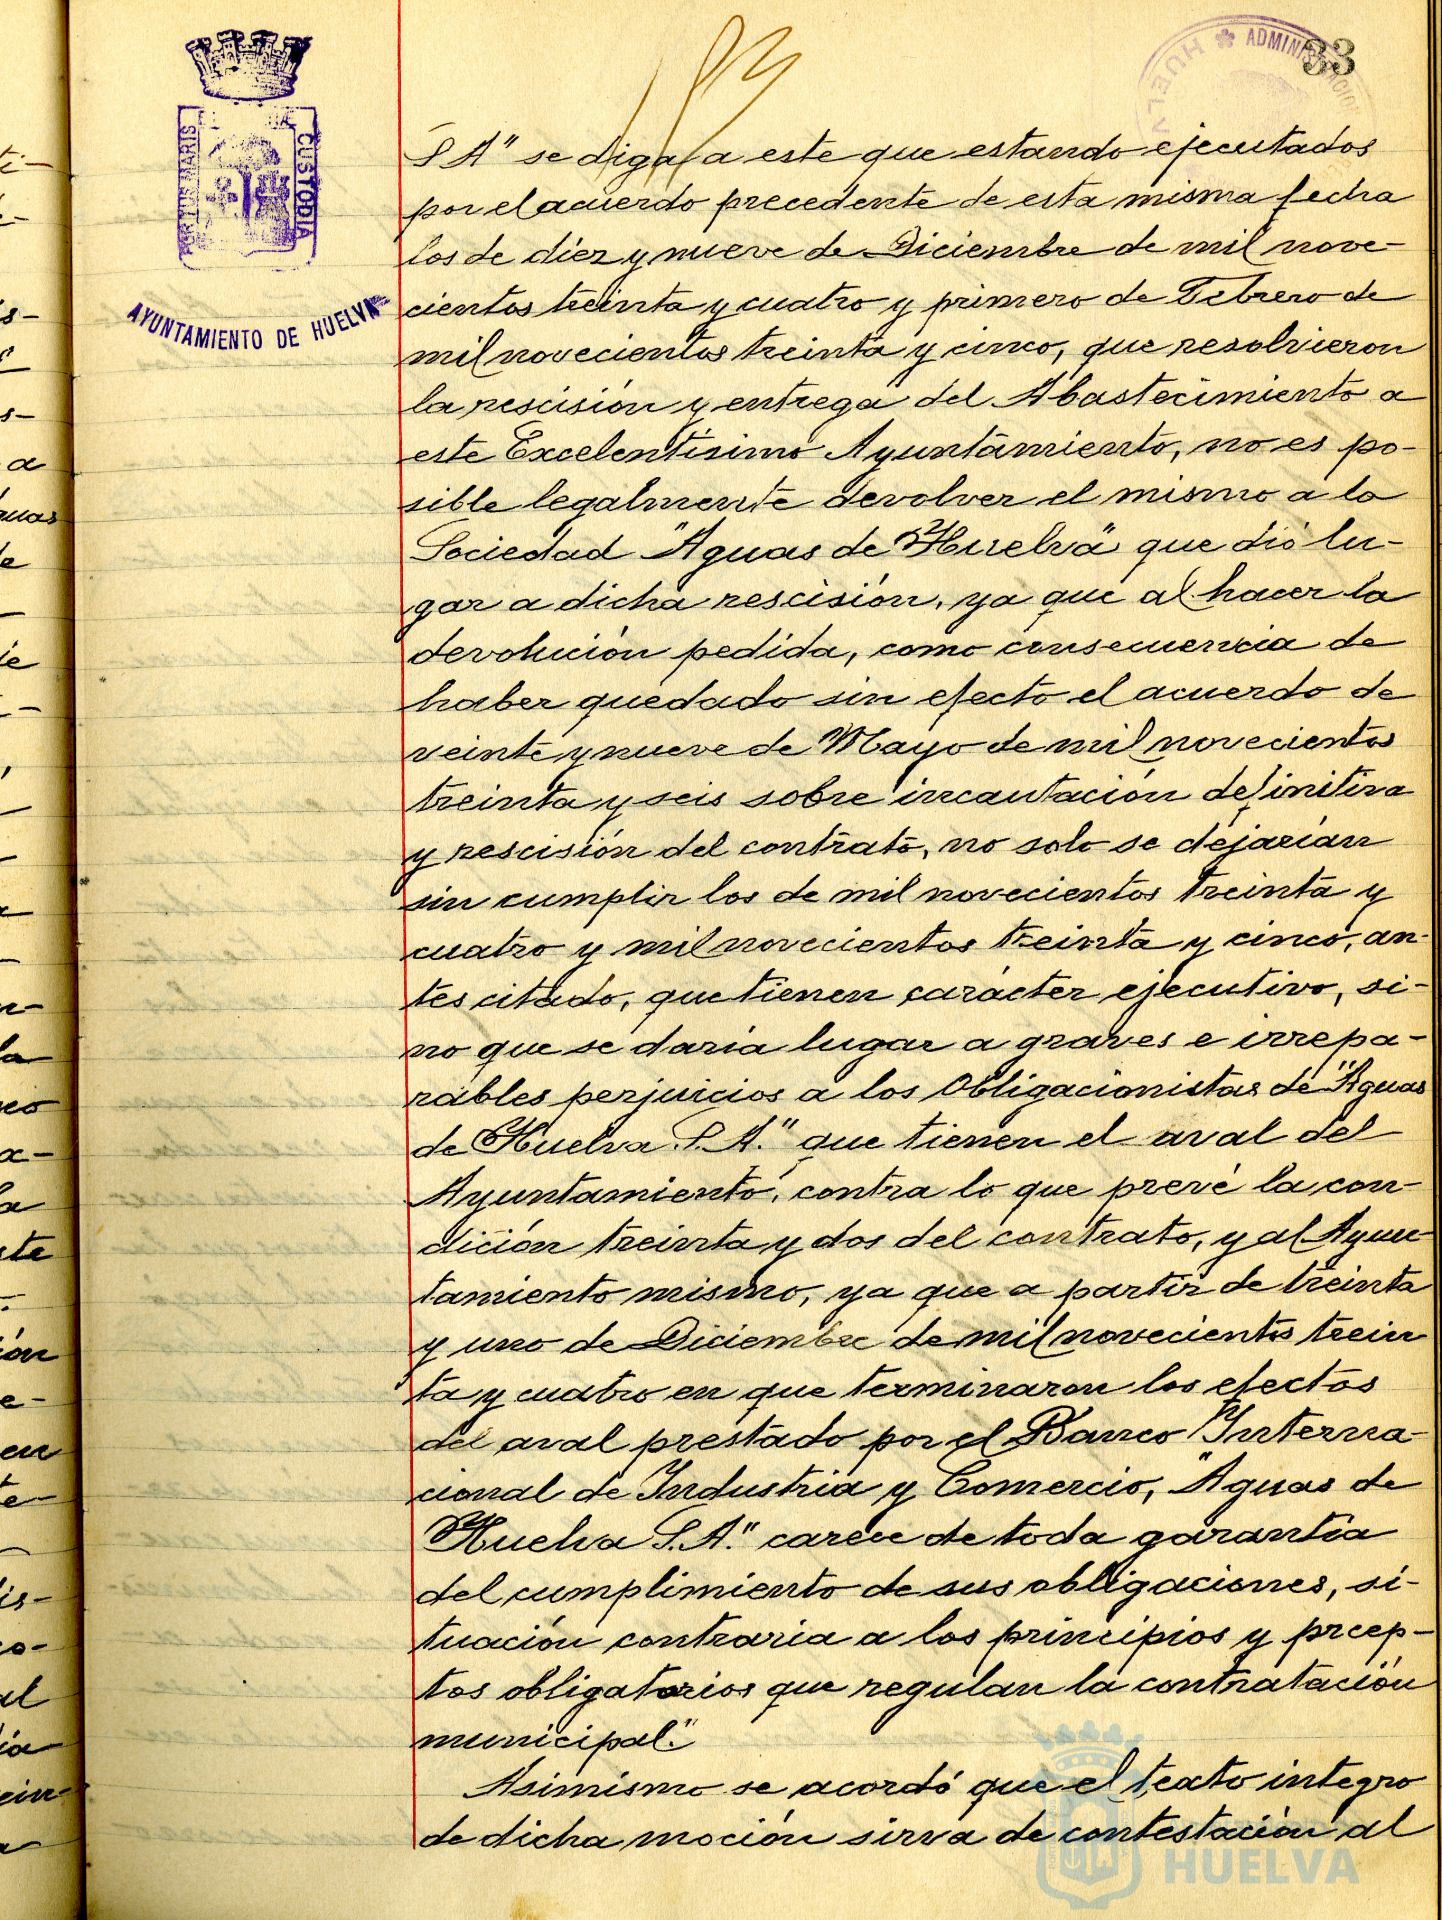 33
ADMINISTRACION
HUELVA
PORTUS MARIS
CUSTODIA
AYUNTAMIENTO DE HUELVA
S A" se diga a este que estando ejecutados
por el acuerdo precedente de esta misma fecha
los de diez y nueve de Diciembre de mil nove-
cientos treinta y cuatro y primero de Febrero de
mil novecientos treinta y cinco, que resolvieron
la rescisión y entrega del Abastecimiento a
este Excelentísimo Ayuntamiento, no es po-
sible legalmente devolver el mismo a la
Sociedad "Aguas de Huelva" que dió lu-
gar a dicha rescisión, ya que al hacer la
devolución pedida, como consecuencia de
haber quedado sin efecto el acuerdo de
veinte y nueve de Mayo de mil novecientos
treinta y seis sobre incautación definitiva
y rescisión del contrato, no solo se dejarían
sin cumplir los de mil novecientos treinta y
cuatro y mil novecientos treinta y cinco, an-
tes citado, que tienen carácter ejecutivo, si-
no que se daría lugar a graves e irrepa-
rables perjuicios a los Obligacionistas de "Aguas
de Huelva S. A." que tienen el aval del
Ayuntamiento, contra lo que prevé la con-
dición treinta y dos del contrato, y al Ayun-
tamiento mismo, ya que a partir de treinta
y uno de Diciembre de mil novecientos trein
ta y cuatro en que terminaron los efectos
del aval prestado por el Banco Interna-
cional de Industria y Comercio, "Aguas de
Huelva S. A." carece de toda garantía
del cumplimiento de sus obligaciones, si-
tuación contraria a los principios y prcep-
tos obligatorios que regulan la contratación
municipal."
Asimismo se acordó que el texto integro
de dicha moción sirva de contestación al
HUELVA